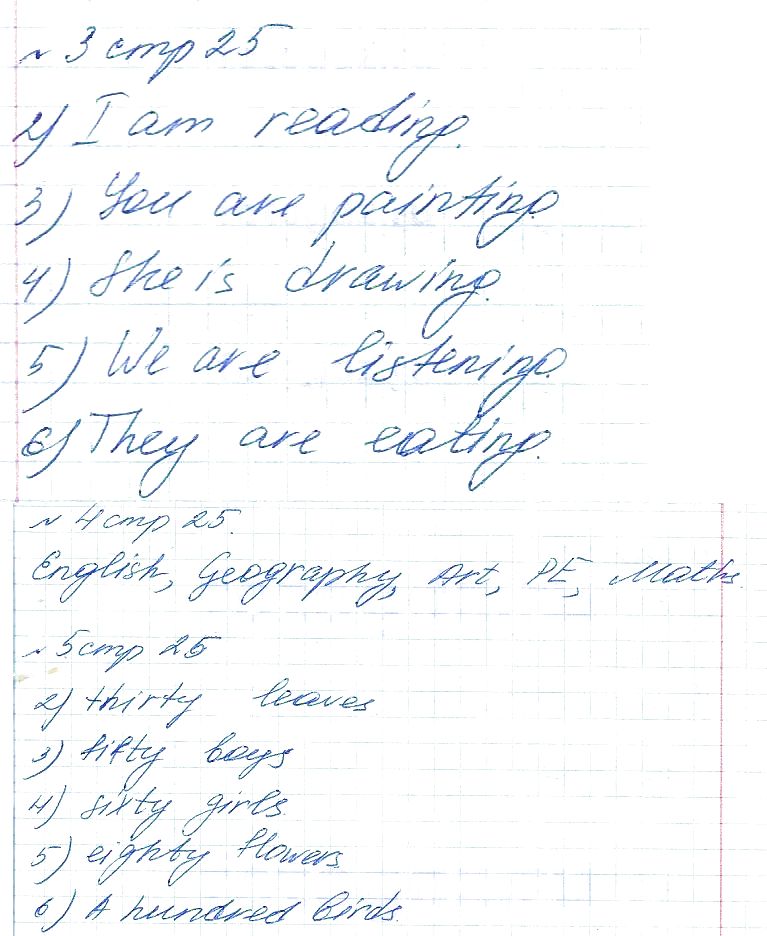 № 3 стр 25
2) I am reading.
3) You are painting
4) She is drawing.
5) We are listening.
6) They are eating.
№ 4 стр 25.
English, Geography, Art, PE, Maths.
№ 5 стр 25
2) thirty leaves
3) fifty boys
4) sixty girls.
5) eighty flowers
6) A hundred birds.